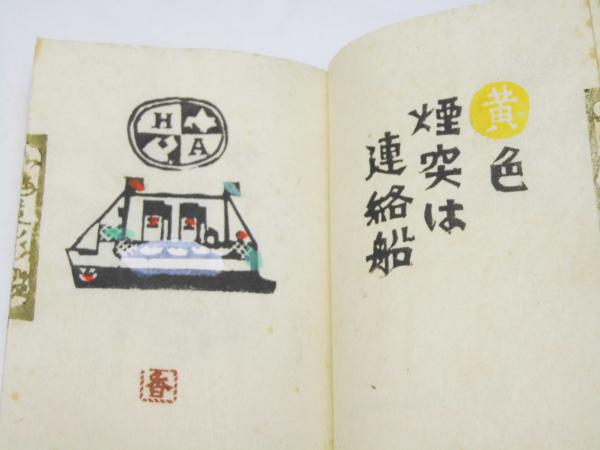 H
A
香
黄色
煙突は
連絡船